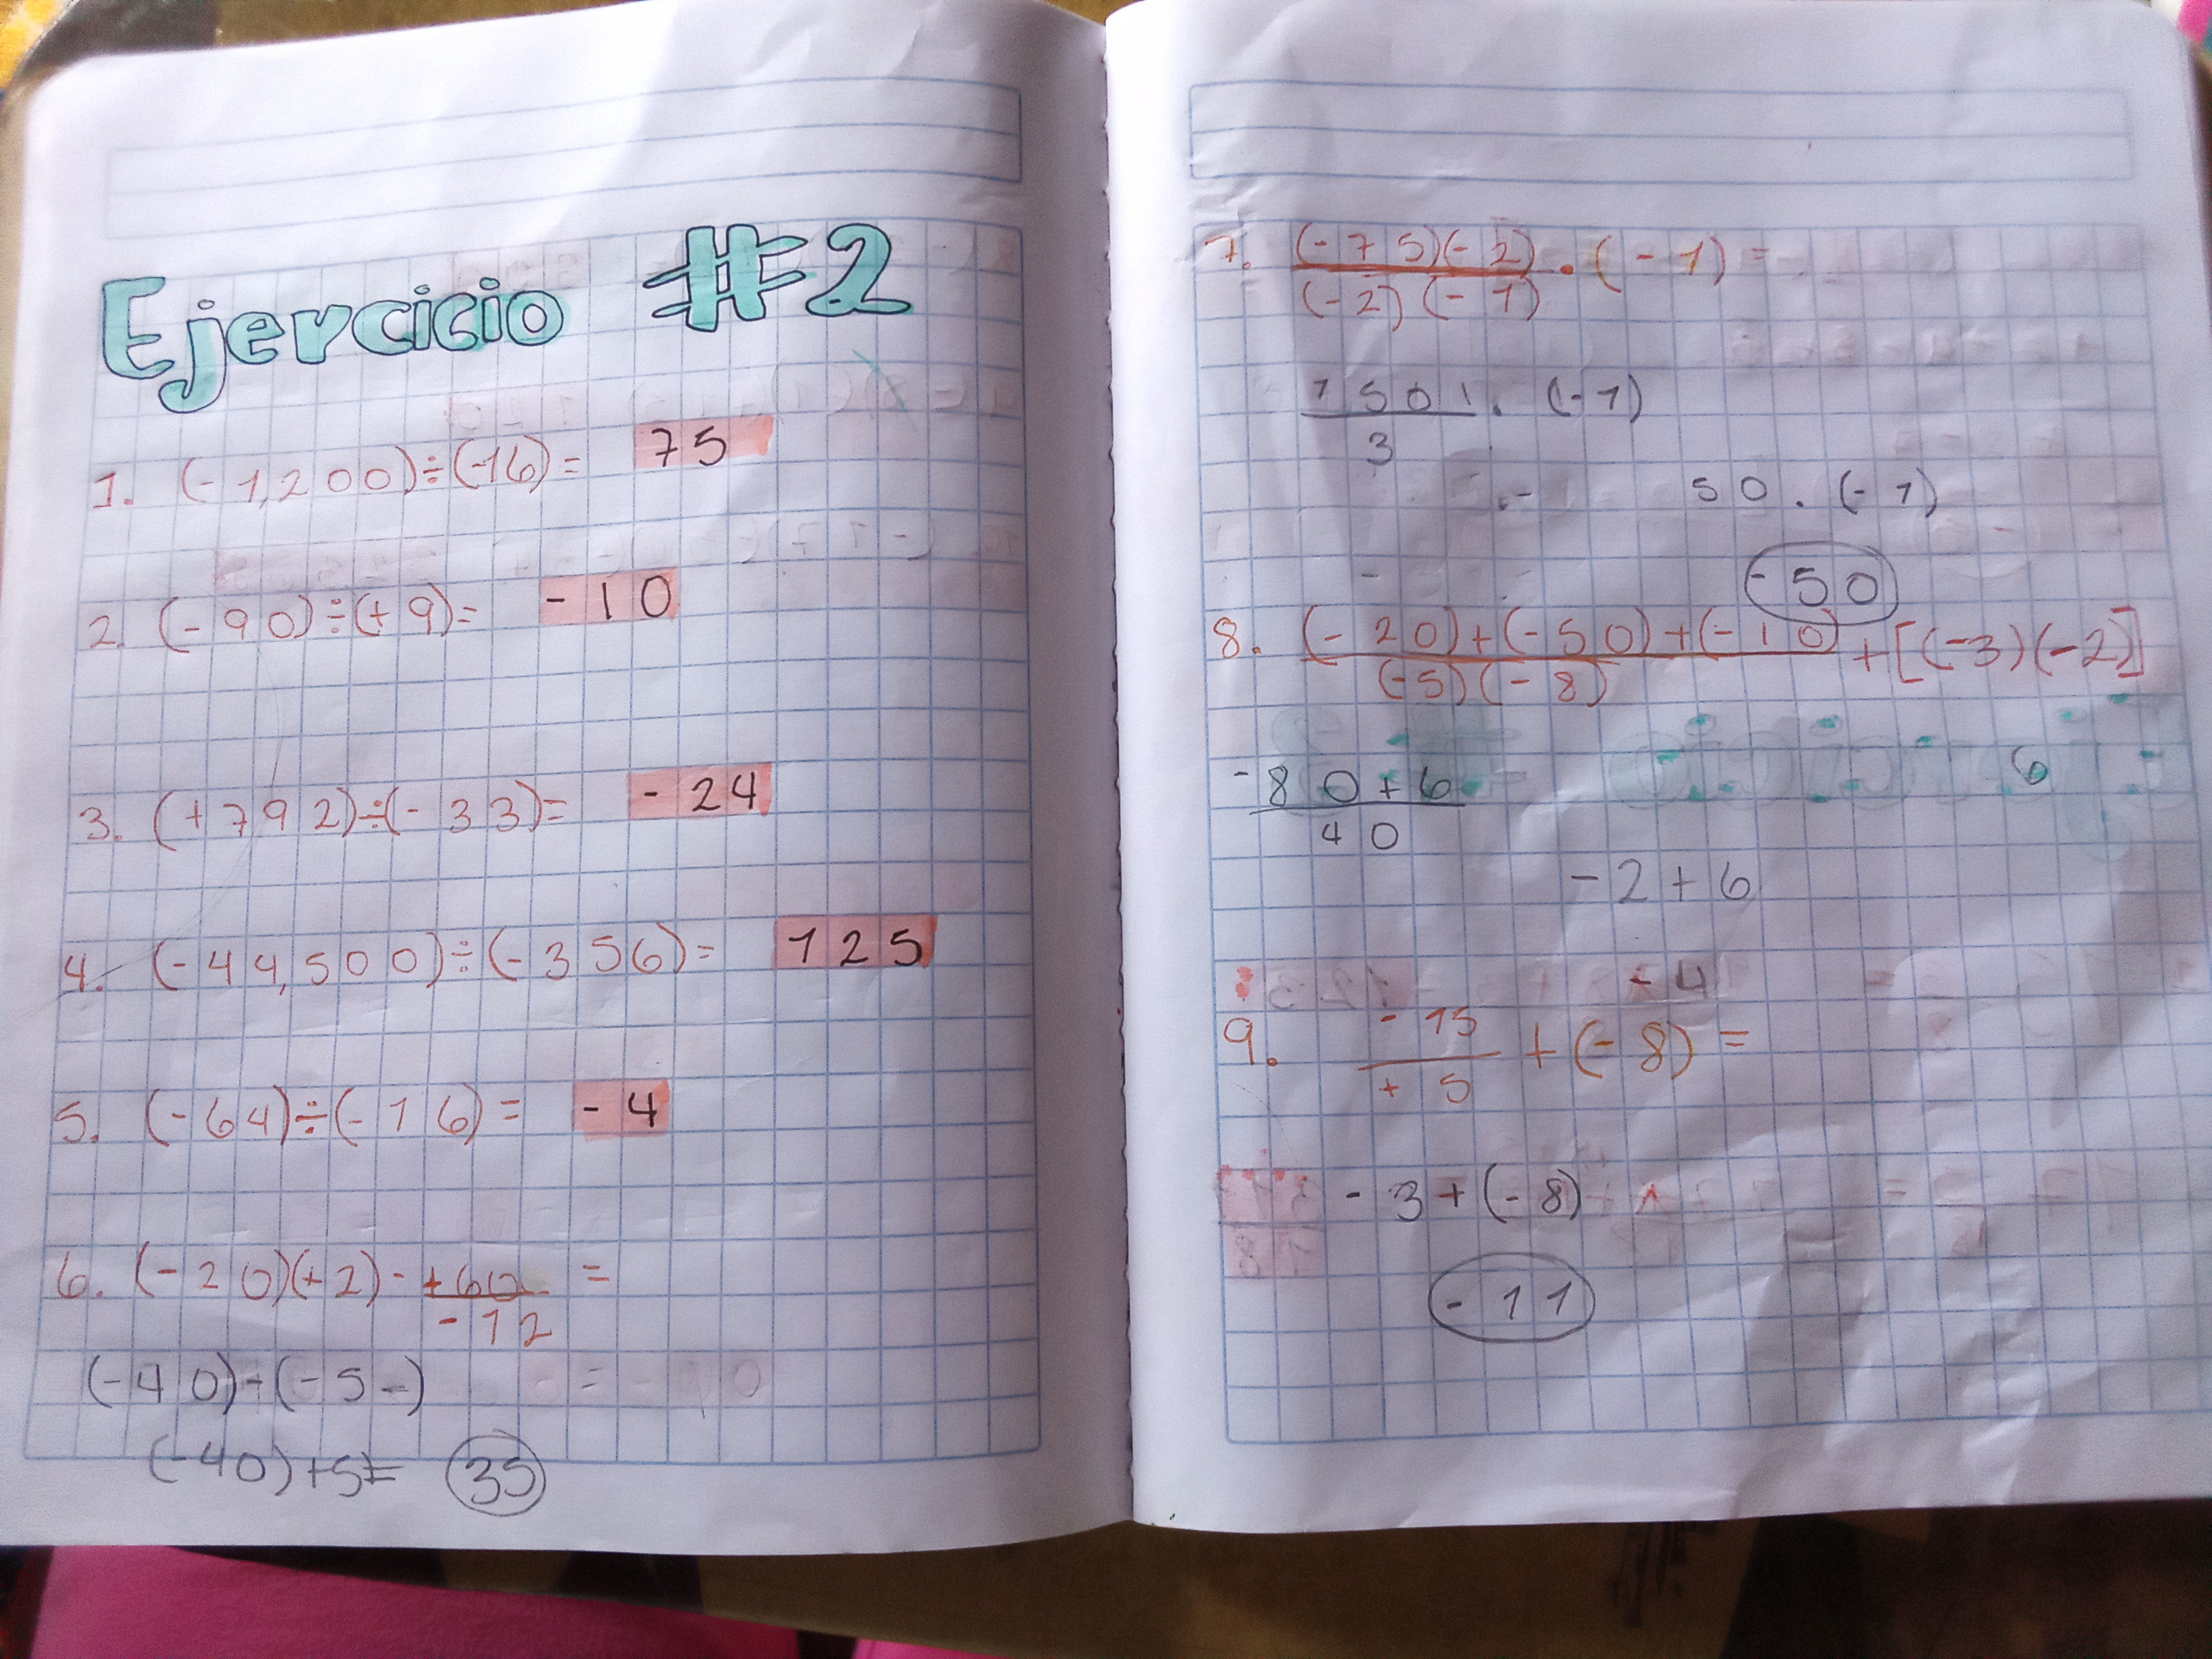 Ejercicio #2
1. (-1,200)÷(-16)= 75
2. (-90)÷(+9)= -10
3. (+792)÷(-33)= -24
4. (-44,500)÷(-356)= 125
5. (-64)÷(-16)= -4
6. (-20)(+2)- +60 =
-12
(-40)-(-5-)
(-40)+5= 35
7. (-75)(-2) · (-1)=
(-2)(-1)
150 . (-1)
3
50 . (-1)
-50
8. (-20)+(-50)+(-10) +[(-3)(-2)]
(-5)(-8)
-80+6 6
40
-2+6
-4
9. -15 +(-8)=
+5
-3+(-8)
-11